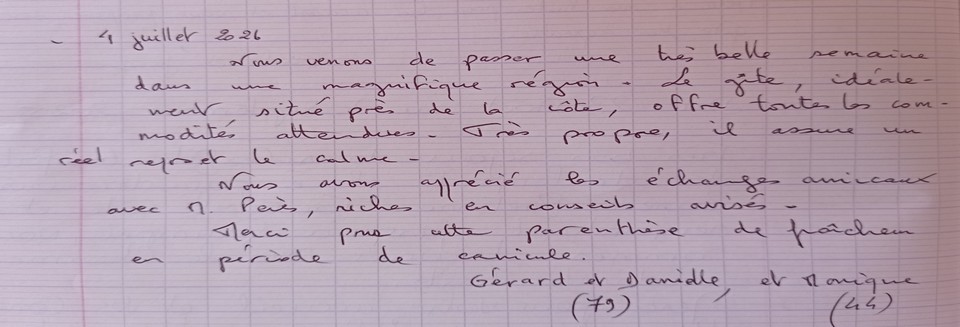 - 4 juillet 2026
Nous venons de passer une très belle semaine
dans une magnifique région - Le gîte, idéale-
ment situé près de la côte, offre toutes les com-
modités attendues - Très propre, il assure un
réel repos et le calme -
Nous avons apprécié les échanges amicaux
avec M. Pais, riches en conseils avisés -
Merci pour cette parenthèse de fraîcheur
en période de canicule.
Gérard et Danielle, et Monique
(79) (44)